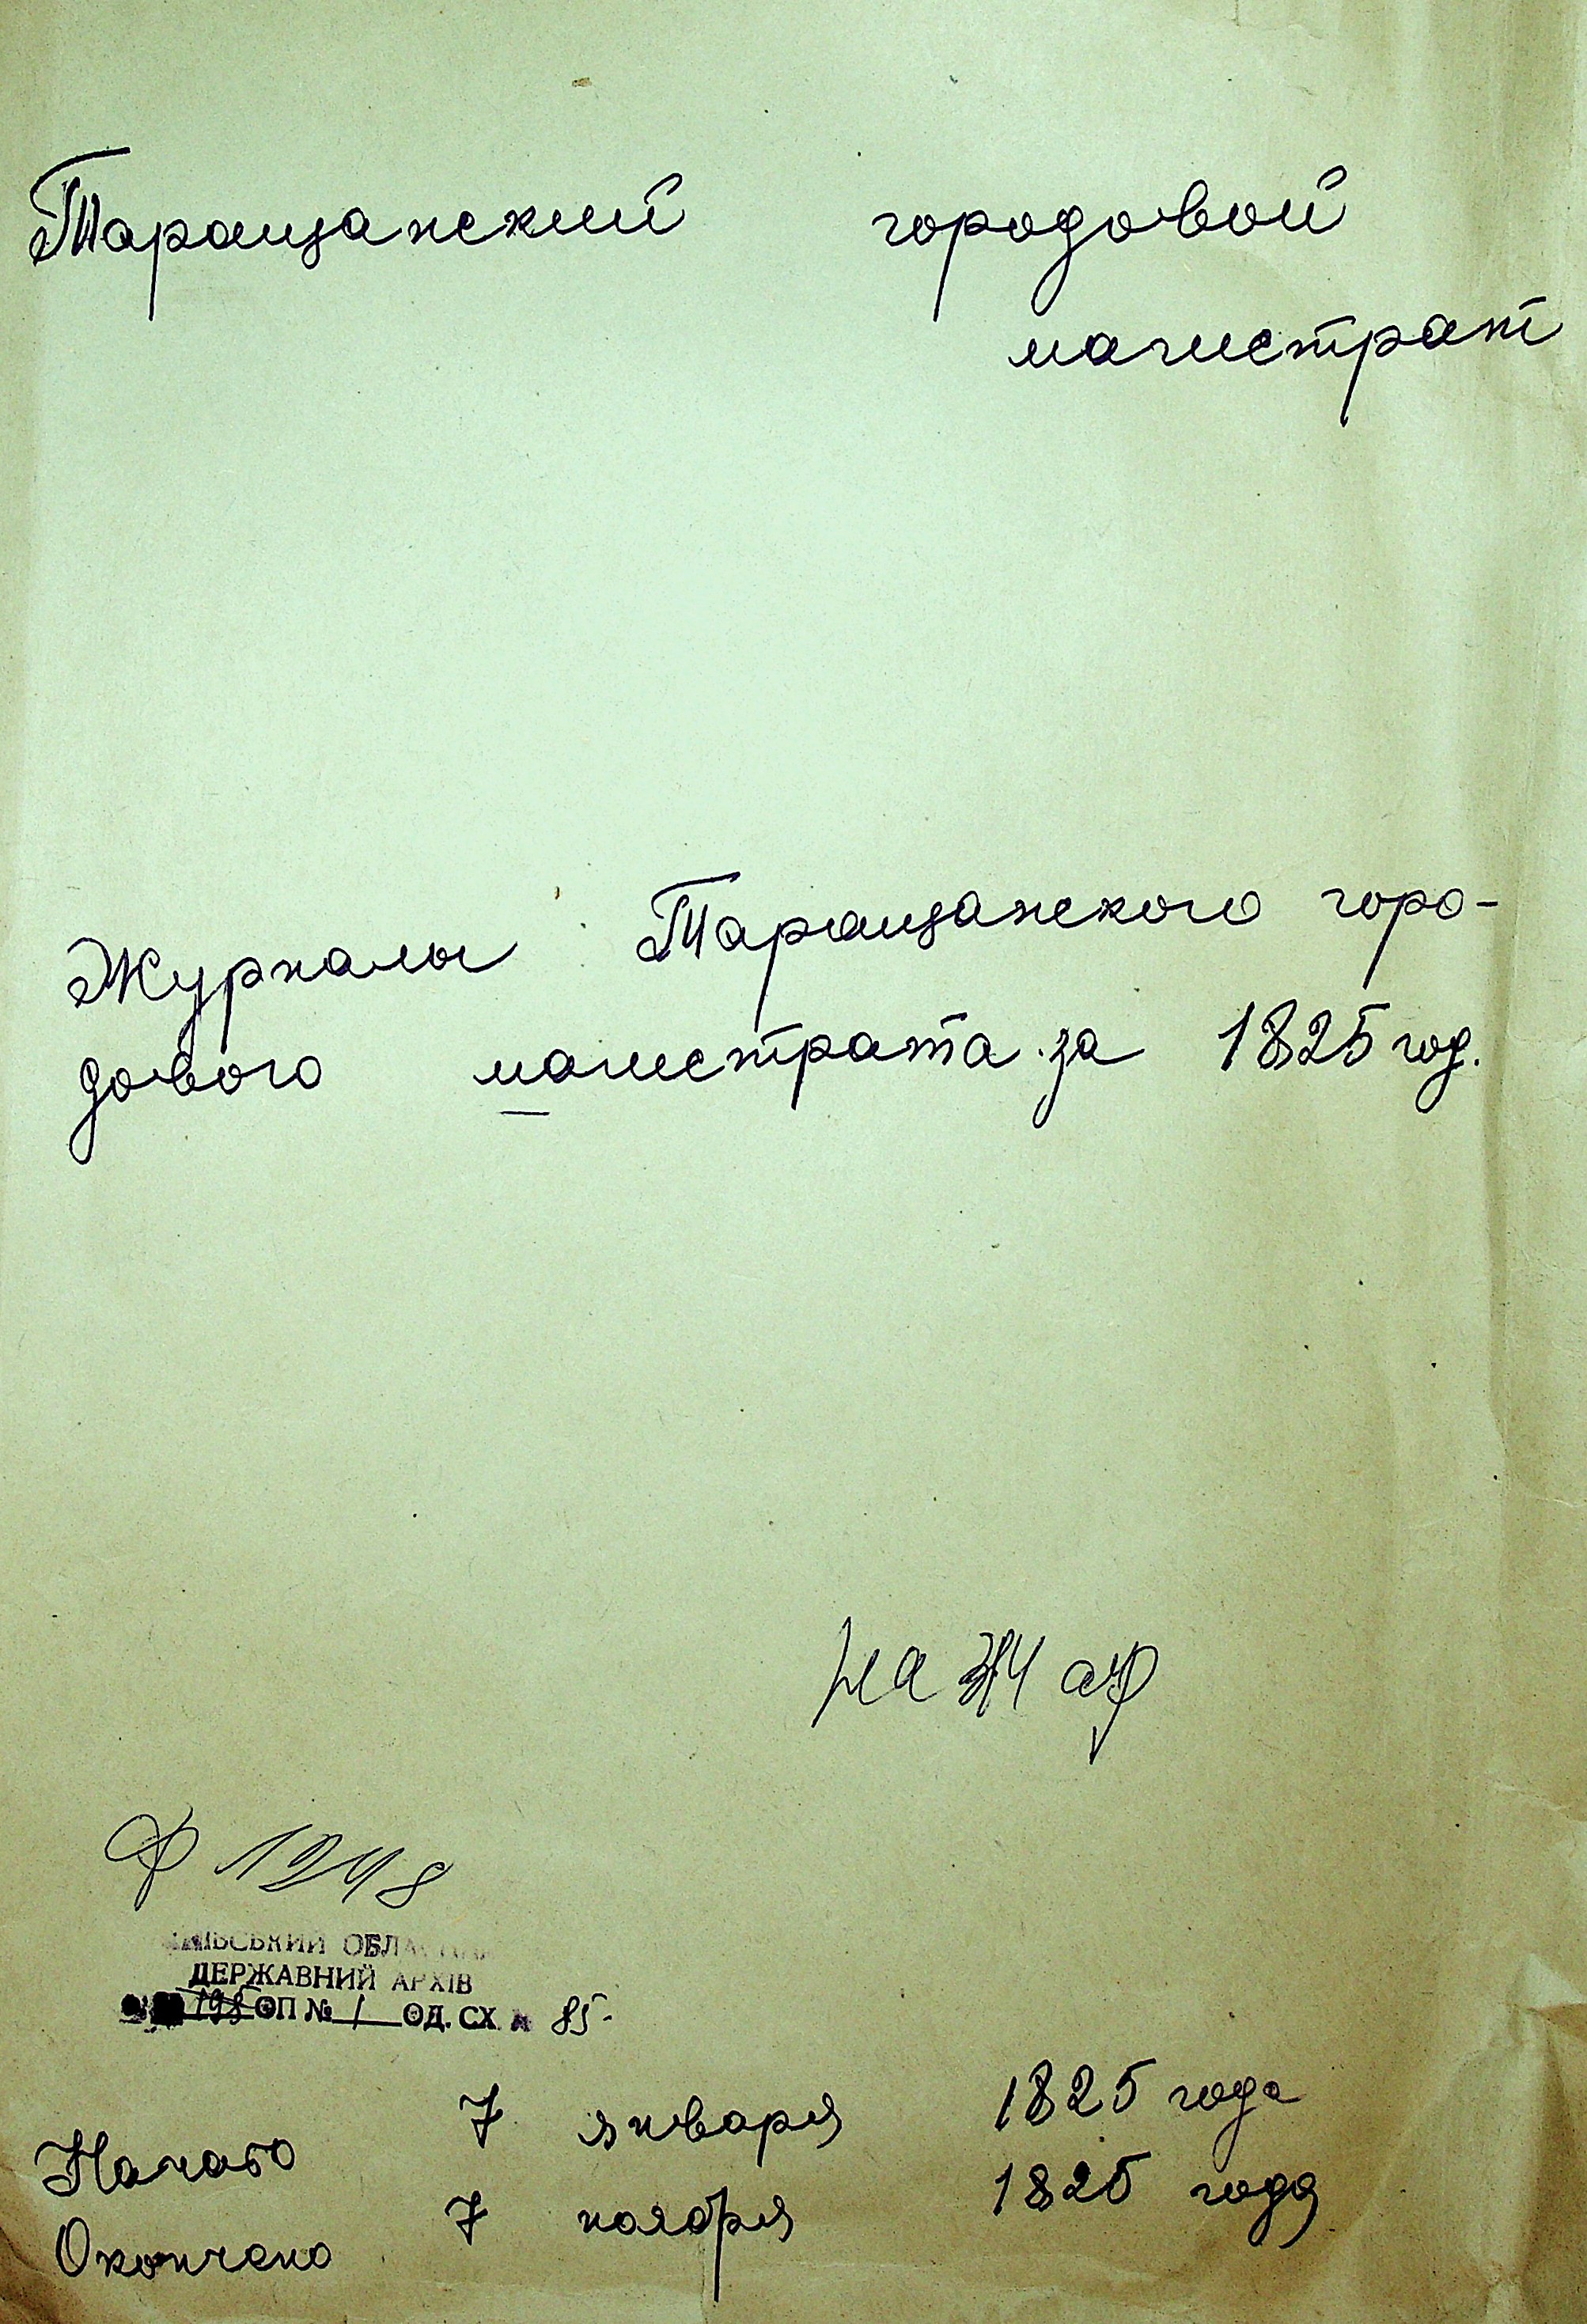 Таращанский городовой
магистрат
Журналы Таращанского горо-
дового магистрата за 1825 год.
на
Ф 1248
ДЕРЖАВНИЙ АРХІВ
ОП № 1 ОД. СХ. № 85
Начато 7 января 1825 года
Окончено 7 ноября 1825 года